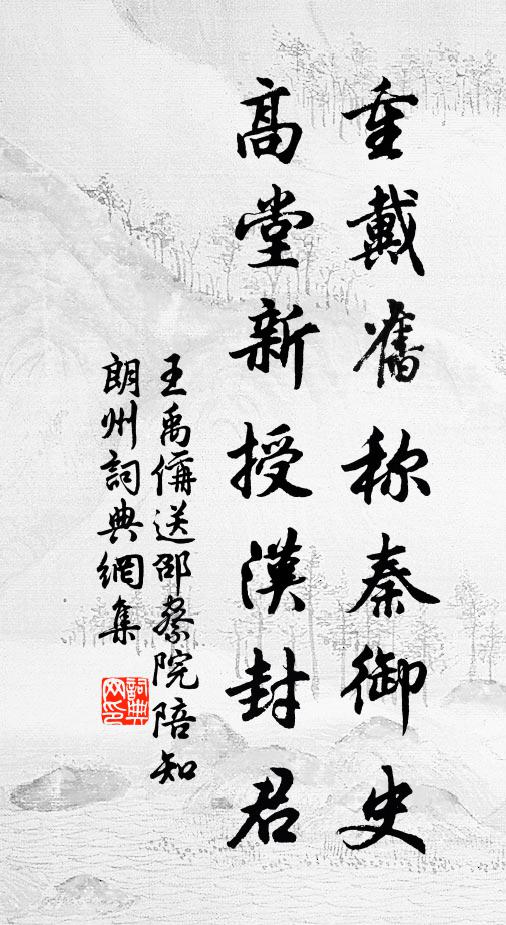 重戴舊称秦御史
高堂新授漢封君
王禹偁送邵察院陪知
朗州詞典網集
詞典網印